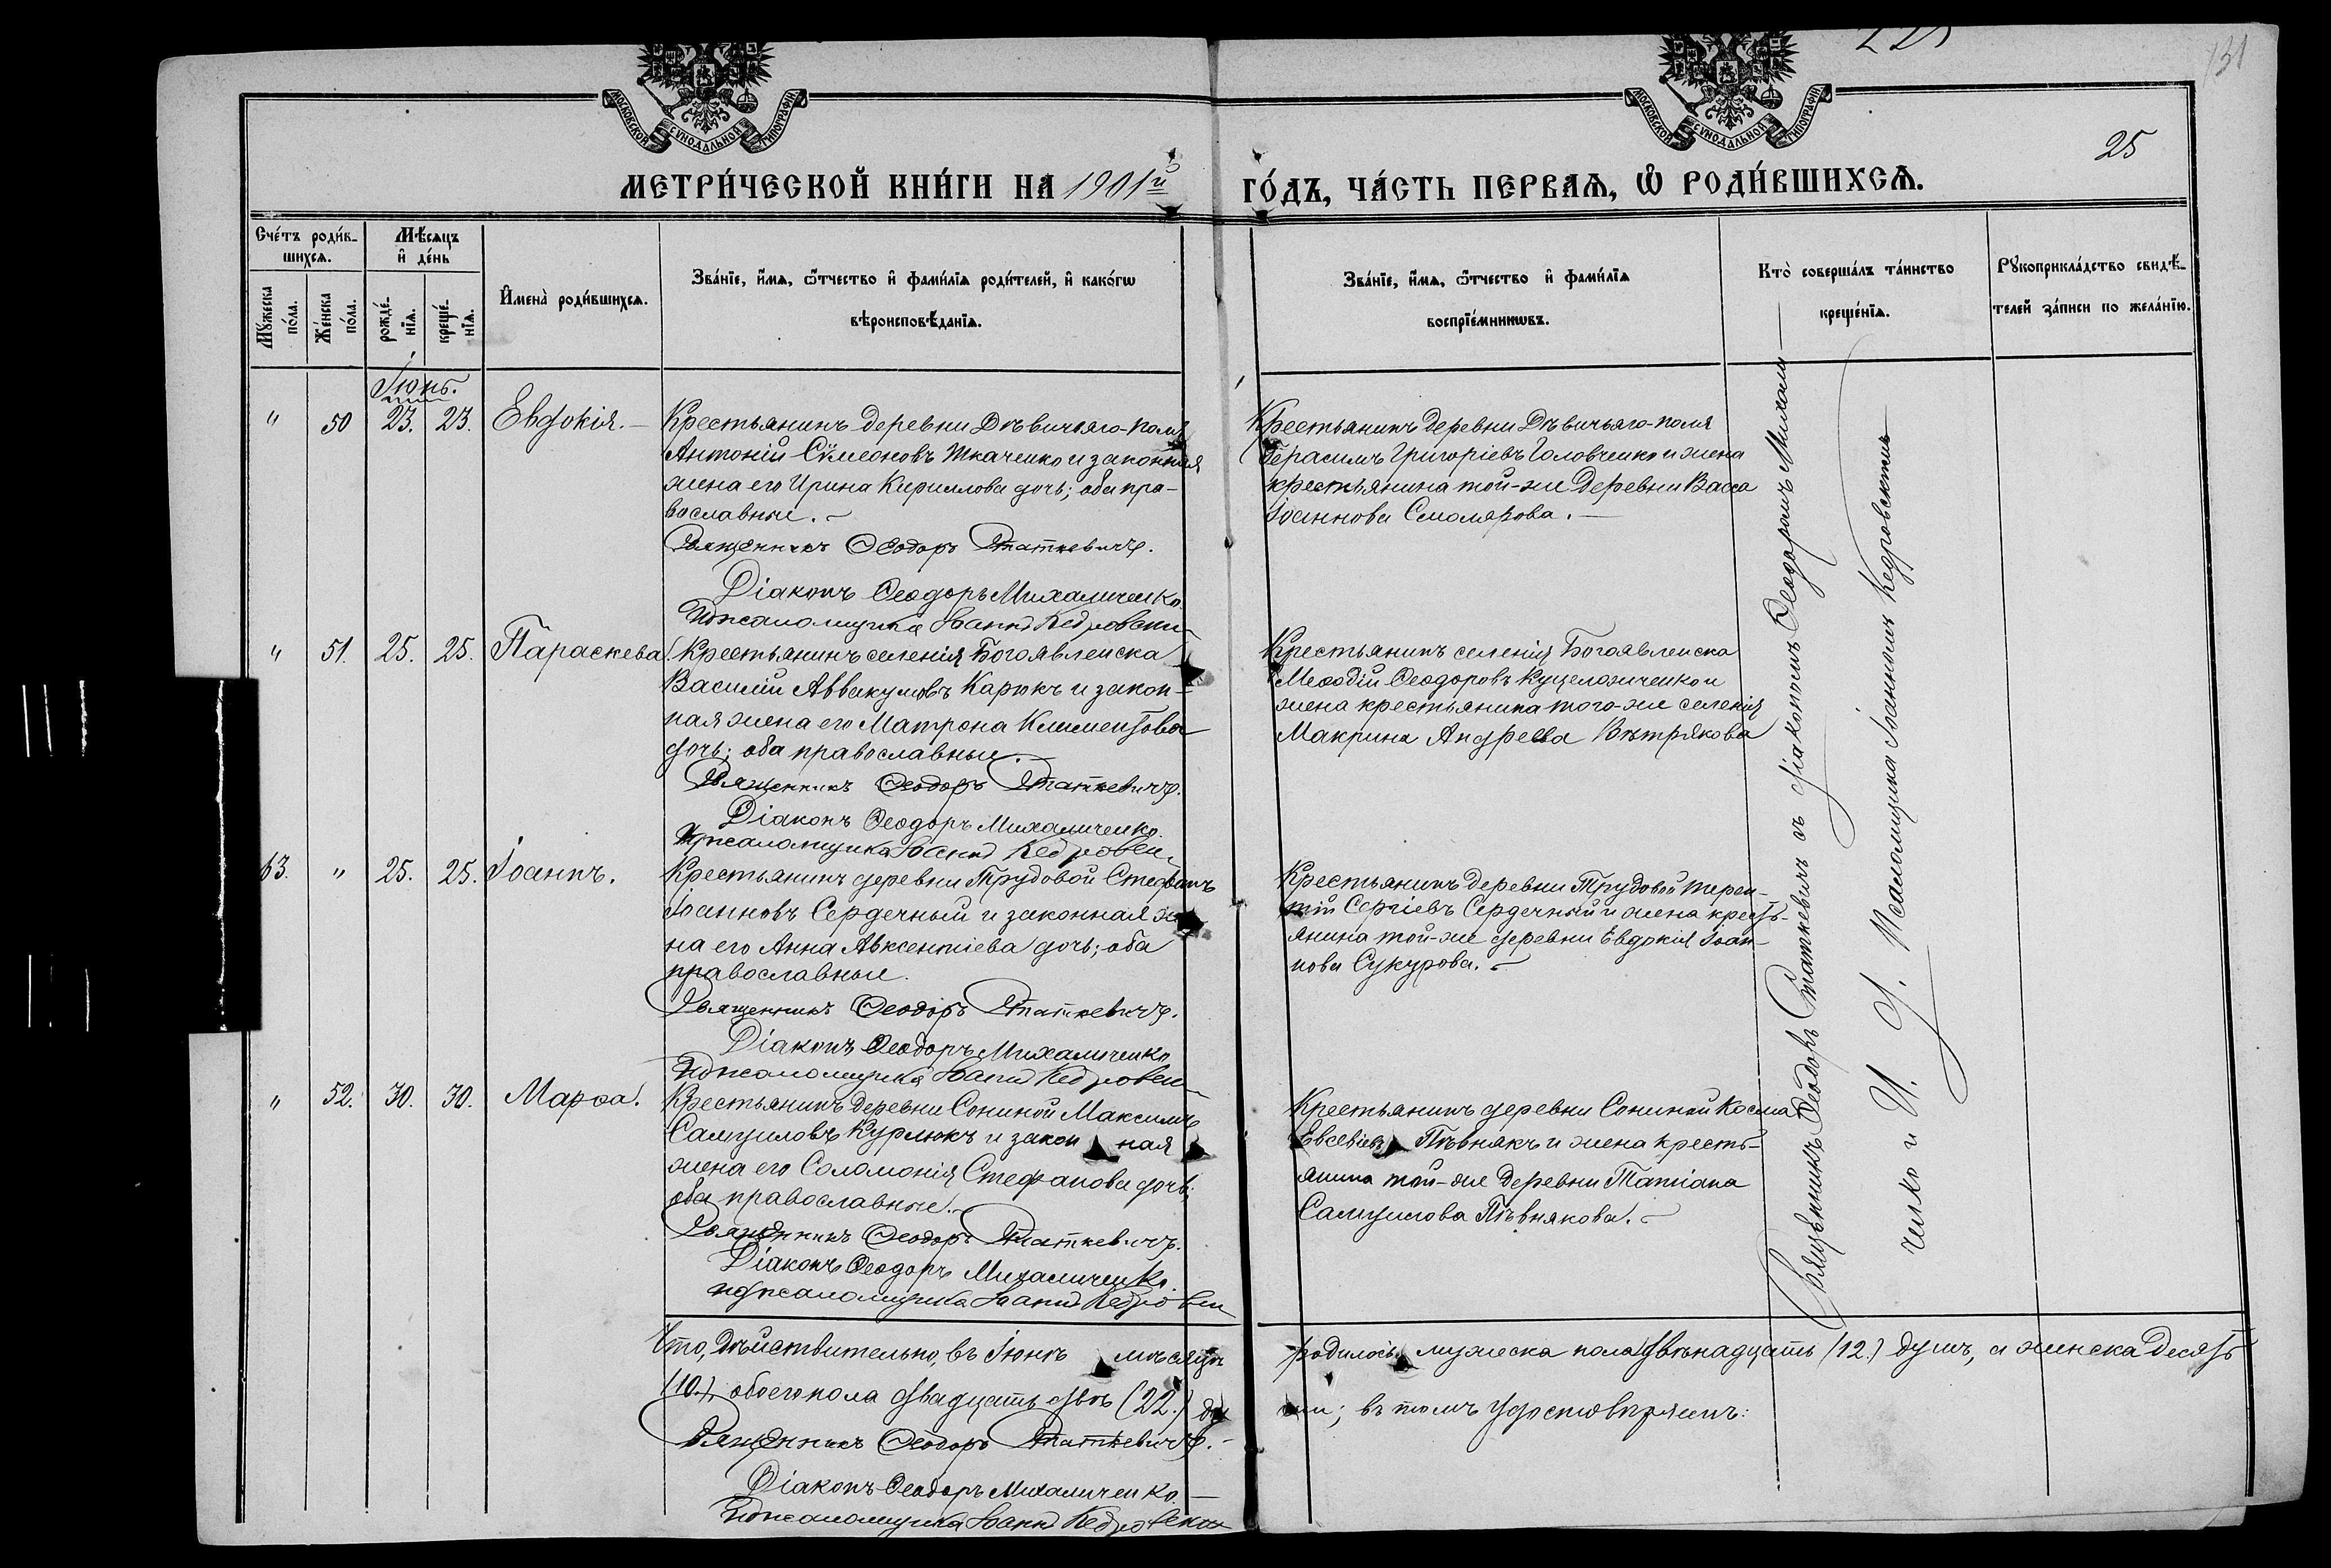 131
25
МОСКОВСКОЙ СѴНОДАЛЬНОЙ ТИПОГРАФІИ
МОСКОВСКОЙ СѴНОДАЛЬНОЙ ТИПОГРАФІИ
МЕТРИ́ЧЕСКОЙ КНИ́ГИ НА 1901й ГО́ДЪ, ЧА́СТЬ ПЕРВАѦ, Ѡ҆ РОДИ́ВШИХСѦ.
Сче́тъ роди́в-
шихсѧ.
Мꙋ́жеска по́ла.
Же́нска по́ла.
Мѣ́сѧцъ
и҆ де́нь
рожде́-
нїѧ.
креще́-
нїѧ.
И҆мена̀ роди́вшихсѧ.
Зва́нїе, и҆́мѧ, ѻ҆́тчество и҆ фами́лїѧ роди́телей, и҆ како́гѡ
вѣроисповѣ́данїѧ.
Зва́нїе, и҆́мѧ, ѻ҆́тчество и҆ фами́лїѧ
воспрїе́мникѡвъ.
Кто̀ соверша́лъ та́инство
креще́нїѧ.
Рꙋкоприкла́дство свидѣ́-
телей за́писи по жела́нїю.
Іюнь.
" 50 23. 23. Евдокія.
Крестьянинъ деревни Дѣвичьяго-поля
Антоній Сѵмеоновъ Ткаченко и законная
жена его Ирина Кириллова дочь; оба пра-
вославные.
Священникъ Ѳеодоръ Статкевичъ.
Діаконъ Ѳеодоръ Михаличенко.
Іоаннъ Кедровски
Крестьянинъ деревни Дѣвичьяго-поля
Герасимъ Григоріевъ Головченко и жена
крестьянина той-же деревни Васса
Іоаннова Смолярова.
" 51. 25. 25. Параскева.
Крестьянинъ селенія Богоявленска
Василій Аввакумовъ Карюкъ и закон-
ная жена его Матрона Климентова
дочь; оба православные.
Священникъ Ѳеодоръ Статкевичъ.
Діаконъ Ѳеодоръ Михаличенко.
Іоаннъ Кедровски
Крестьянинъ селенія Богоявленска
Меѳодій Ѳеодоровъ и
жена крестьянина того-же селенія
Макрина Андреева Вѣтрякова
63. " 25. 25. Іоаннъ.
Крестьянинъ деревни Трудовой Стефанъ
Іоанновъ Сердечный и законная же-
на его Анна Авксентіева дочь; оба
православные.
Священникъ Ѳеодоръ Статкевичъ.
Діаконъ Ѳеодоръ Михаличенко
Іоаннъ Кедровски
Крестьянинъ деревни Трудовой Терен-
тій Сергіевъ Сердечный и жена кресть-
янина той-же деревни Евдокія Іоан-
нова Сукурова.
" 52. 30. 30. Марѳа.
Крестьянинъ деревни Сониной Максимъ
Самуиловъ Курлюкъ и закон ная
жена его Соломонія Стефанова дочь;
оба православные.
Священникъ Ѳеодоръ Статкевичъ.
Діаконъ Ѳеодоръ Михаличенко.
Іоаннъ Кедровски
Крестьянинъ деревни Сониной Косма
Евсевіевъ Пѣвнякъ и жена кресть-
янина той-же деревни Татіана
Самуилова Пѣвнякова.
Священникъ Ѳеодоръ Статкевичъ съ діакономъ Ѳеодоромъ Михали-
ченко и И. д. Псаломщика Іоанномъ Кедровскимъ
Что, дѣйствительно, въ Іюнѣ мѣсяцѣ родилось мужеска пола двѣнадцать (12.) душъ, а женска десять
(10.), обоего пола двадцать двѣ (22.) ду ши; въ томъ удостовѣряемъ:
Священникъ Ѳеодоръ Статкевичъ.
Діаконъ Ѳеодоръ Михаличенко.
Іоаннъ Кедровски